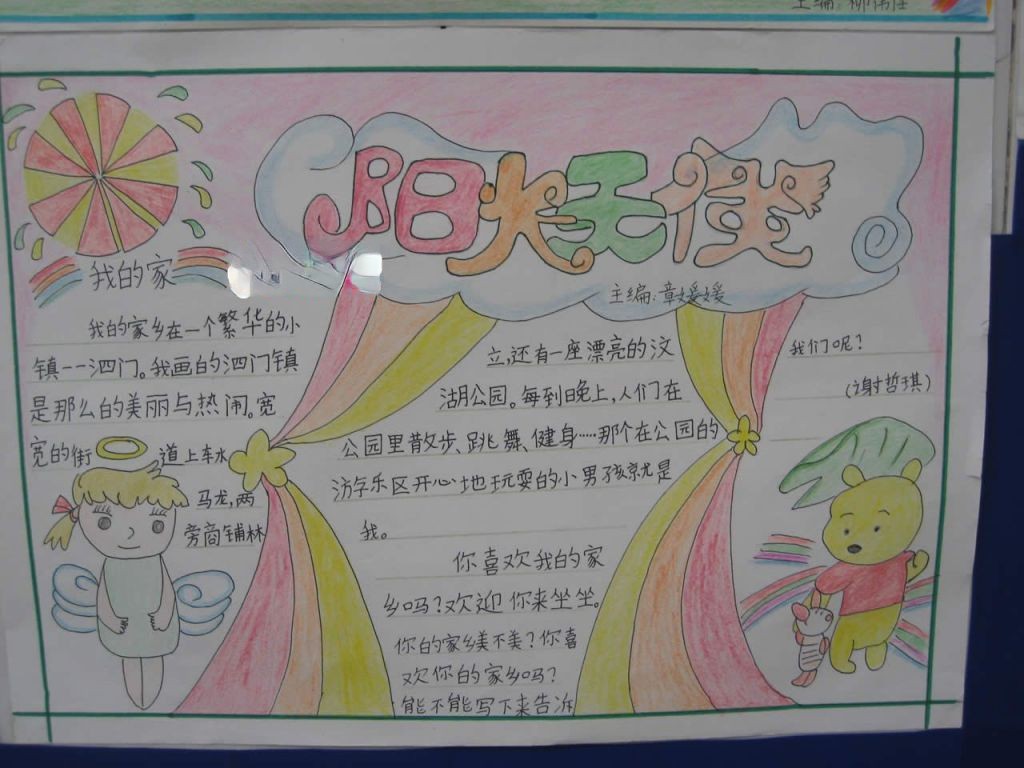 主编:柳伟任
阳火天使
主编:章媛媛
我的家
我的家乡在一个繁华的小
镇——泗门。我画的泗门镇
是那么的美丽与热闹。宽
宽的街道上车水
马龙,两
旁商铺林
立,还有一座漂亮的汶
湖公园。每到晚上,人们在
公园里散步、跳舞、健身……那个在公园的
访字乐区开心地玩耍的小男孩就是
我。
你喜欢我的家
乡吗?欢迎你来坐坐。
你的家乡美不美?你喜
欢你的家乡吗?
能不能写下来告诉
我们呢?
(谢哲琪)